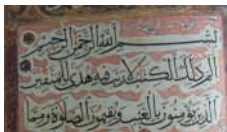 بسم الله الرحمن الرحيم
الم ذلك الكتب لا ريب فيه هدى للمتقين
الذين يؤمنون بالغيب ويقيمون الصلوة ومما